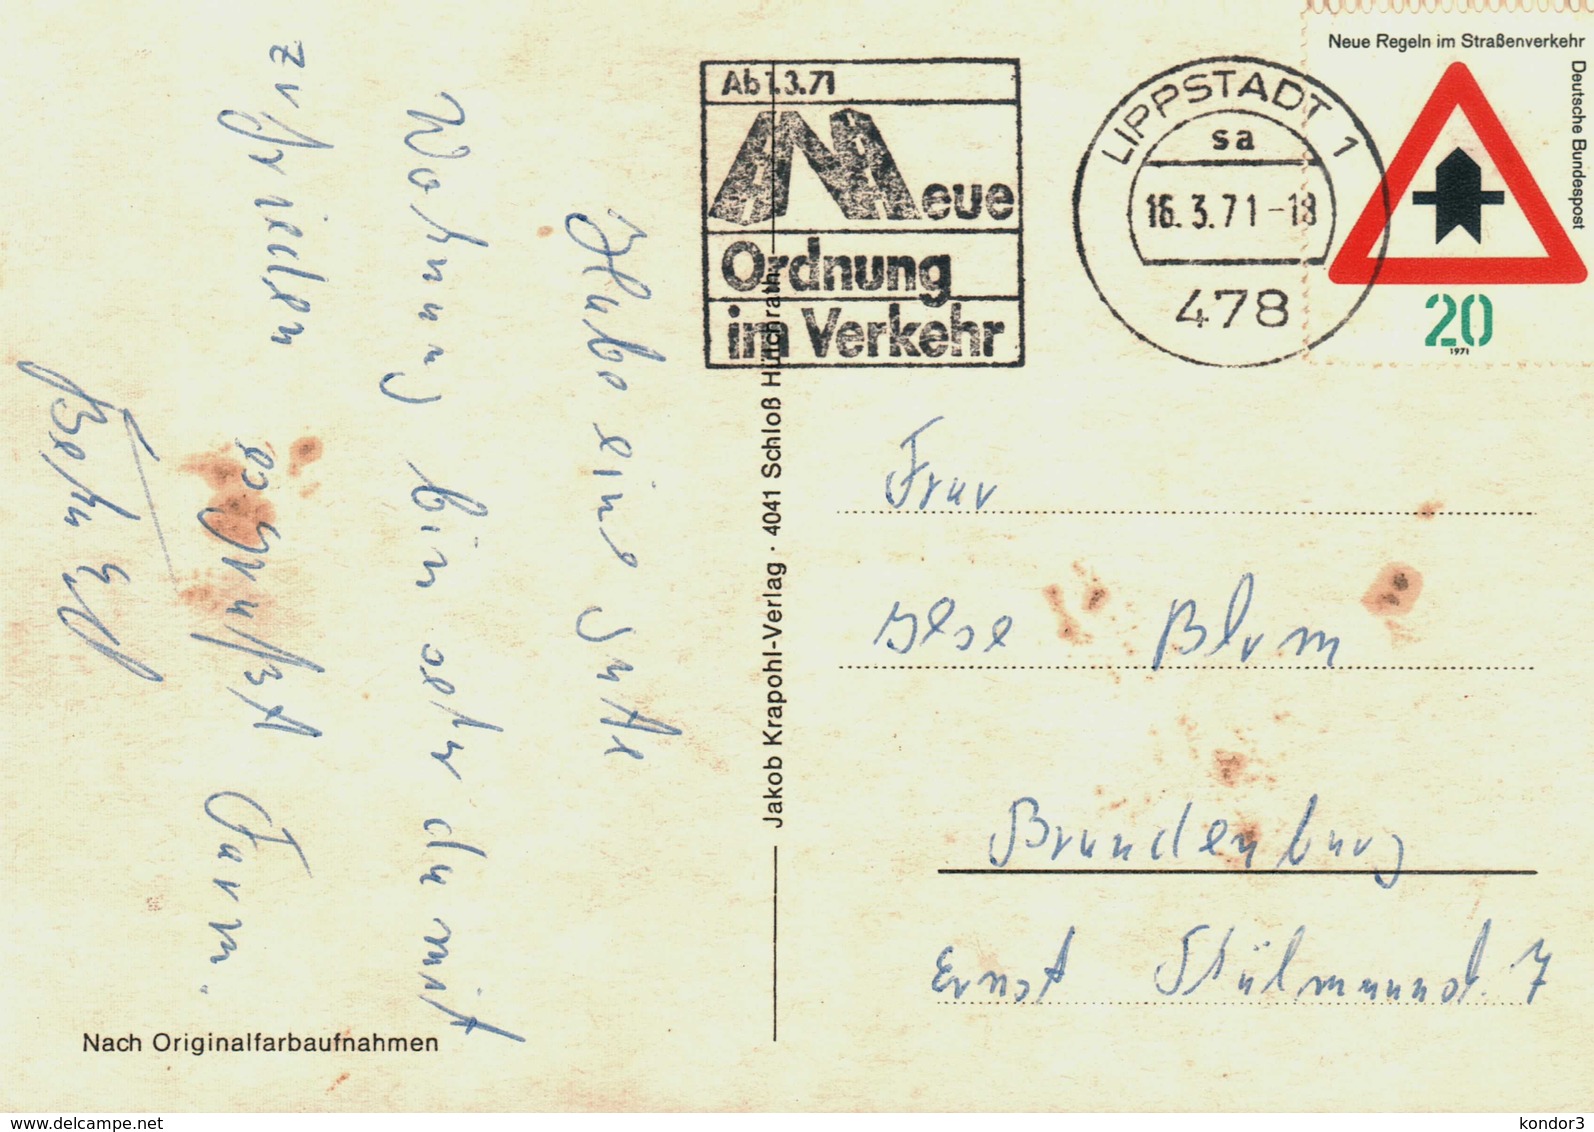 Neue Regeln im Straßenverkehr
Deutsche Bundespost
20
1971
Ab 1.3.71
Neue
Ordnung
im Verkehr
LIPPSTADT 1
sa
16.3.71-18
478
Habe eine gute
Wohnung bin sehr damit
zufrieden es grußst Farm.
Frau
Ilse Blum
Brandenburg
Ernst Stülmannst. 7
Jakob Krapohl-Verlag · 4041 Schloß Hülchrath
Nach Originalfarbaufnahmen
www.delcampe.net
kondor3